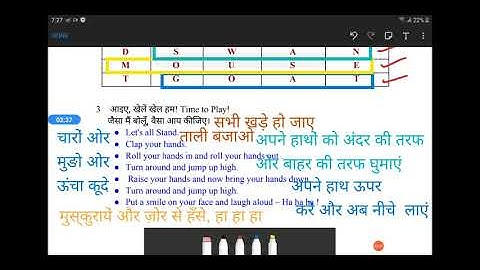 7:27
22%
02:37
D S W A N
M O U S E
T G O A T
3 आइए, खेलें खेल हम! Time to Play!
जैसा मैं बोलूँ, वैसा आप कीजिए। सभी खड़े हो जाए
Let's all Stand.
चारों ओर Clap your hands. ताली बजाओ अपने हाथों को अंदर की तरफ
मुङो ओर Roll your hands in and roll your hands out और बाहर की तरफ घुमाएं
Turn around and jump up high.
ऊंचा कूदे Raise your hands and now bring your hands down. अपने हाथ ऊपर
Turn around and jump up high.
करें और अब नीचे लाएं
Put a smile on your face and laugh aloud – Ha ha ha !
मुस्कुराये और ज़ोर से हँसे, हा हा हा